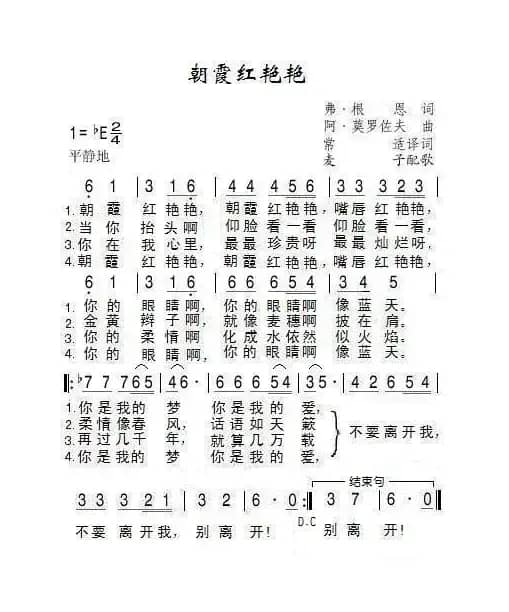 朝霞红艳艳
弗·根 恩 词
阿·莫罗佐夫 曲
常 适译词
麦 子配歌
1=♭E 2/4
平静地
6 1 | 3 1 6 | 4 4 4 5 6 | 3 3 3 2 3 |
1. 朝 霞 红 艳艳, 朝霞 红 艳艳, 嘴唇 红艳艳,
2. 当 你 抬 头啊 仰脸 看 一看 仰脸 看一看,
3. 你 在 我 心里, 最最 珍 贵呀 最最 灿烂呀,
4. 朝 霞 红 艳艳, 朝霞 红 艳艳, 嘴唇 红艳艳,
6 1 | 3 1 6 | 4 4 4 5 6 | 3 4 5 |
1. 你 的 眼 睛啊, 你 的 眼睛啊 像 蓝 天。
2. 金 黄 辫 子啊, 就 像 麦穗啊 披 在 肩。
3. 你 的 柔 情啊 化 成 水依然 似 火 焰。
4. 你 的 眼 睛啊, 你 的 眼睛啊 像 蓝 天。
‖: ♭7 7 765 | 46· | 6 6 6 54 | 35· | 4 2 6 54 |
1. 你 是 我 的 梦 你 是 我 的 爱,
2. 柔 情 像 春 风, 话 语 如 天 籁
3. 再 过 几 千 年, 就 算 几 万 载
4. 你 是 我 的 梦 你 是 我 的 爱,
不 要 离 开 我,
结束句
3 3 3 21 | 3 2 | 6 - | 6· 0 :‖ 3 7 | 6· 0 ‖
D.C
不 要 离 开 我, 别 离 开! 别 离 开!